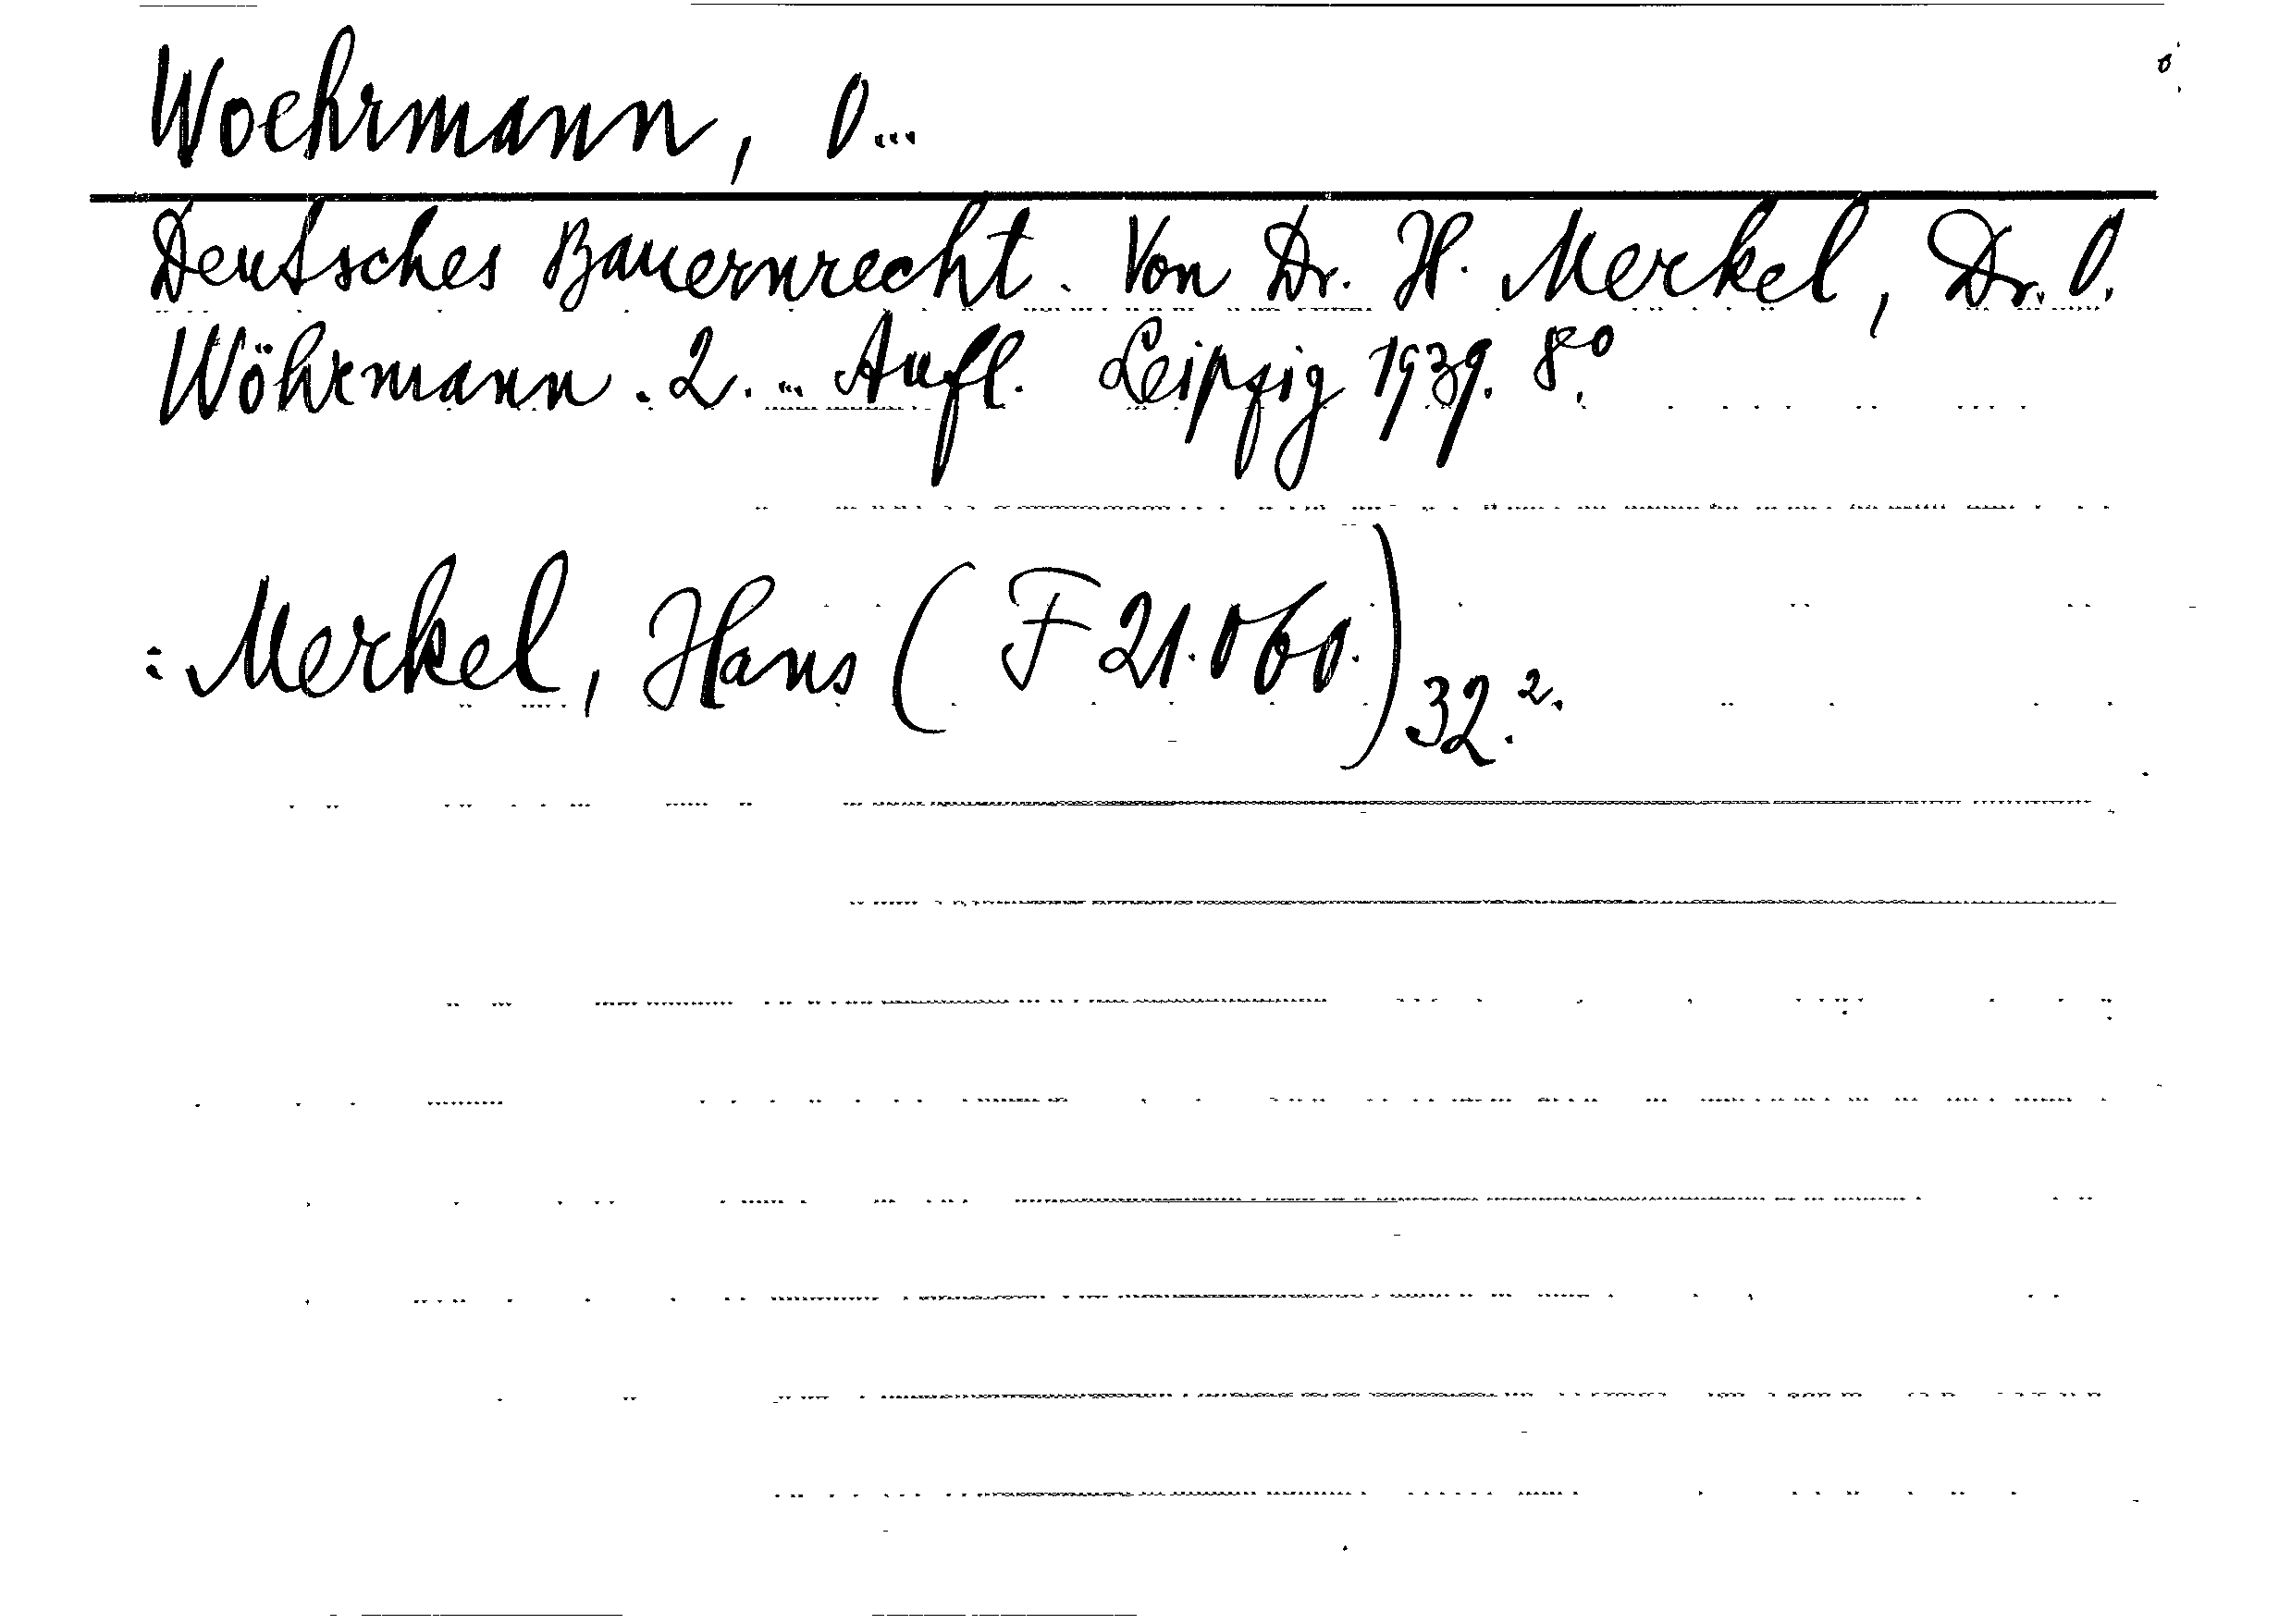 Woehrmann, O...
Deutsches Bauernrecht. Von Dr. H. Merkel, Dr. O.
Wöhrmann. 2. ... Aufl. Leipzig 1939. 8°.
: Merkel, Hans (F 21.060.) 32.².